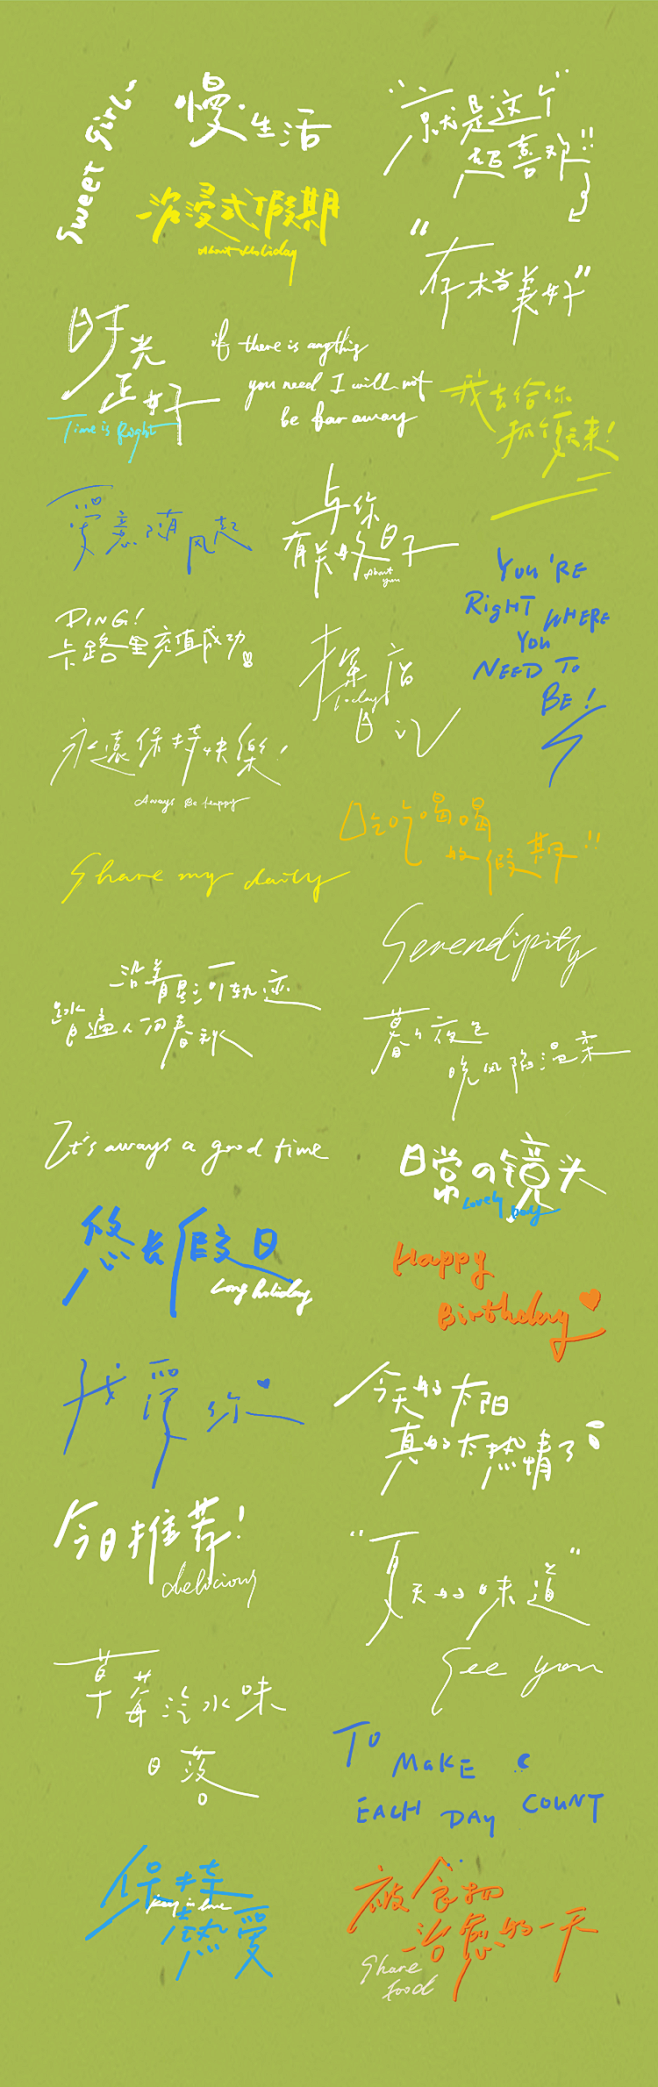 Sweet Girl~
慢·生活
"就是这个
超喜欢!!
沉浸式假期
About Holiday
"有木当美好"
时光
正好
Time is Right
if there is anything
you need I will not
be far away
我去给你
抓夏天来!
爱意随风起
与你
有关的日子
About
you
YOU'RE
RigHT WHERE
YOU
NEED TO
BE!
DING!
卡路里充值成功
探店
Today
日记
永远保持快樂!
Aways Be happy
吃吃喝喝
的假期!!
Share my daily
Serendipity
沿着星河轨迹
踏遍人间春秋
暮色夜色
晚风陷温柔
It's aways a good time
日常の镜头
Lovely Day
悠长假日
Long holiday
Happy
Birthday
我爱你
今天的太阳
真的太热情了
今日推荐!
delicious
"夏天的味道"
See you
草莓汽水味
日落
TO MAKE
EACH DAY COUNT
保持
keep in love
热爱
被食物
治愈的一天
Share
food